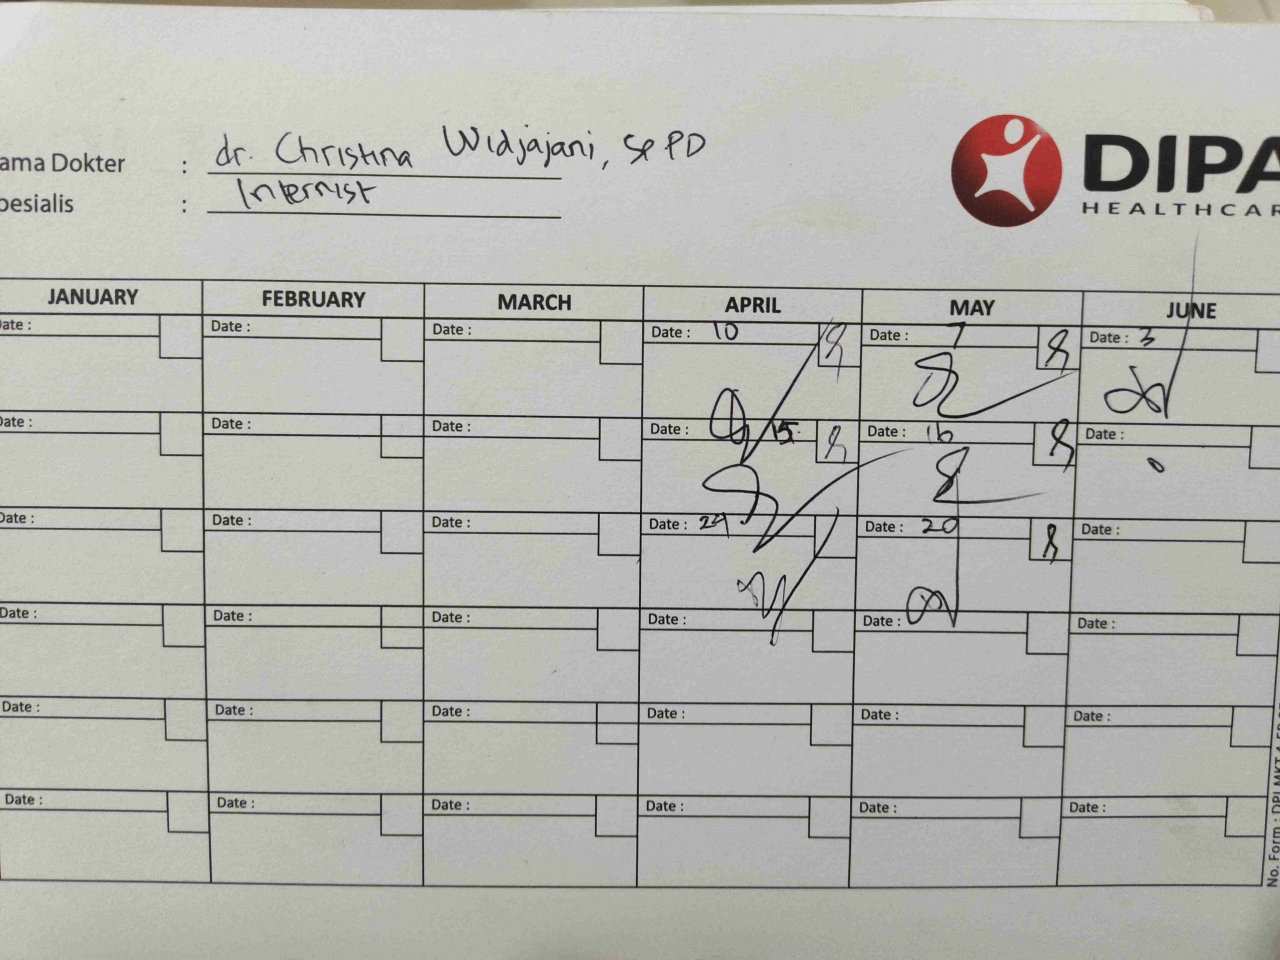 ama Dokter : dr. Christina Widjajani, SpPD
pesialis : Internist
DIPA
HEALTHCAR
JANUARY FEBRUARY MARCH APRIL MAY JUNE
ate : Date : Date : Date : 10 Date : 7 Date : 3
Date : Date : Date : Date : 15 Date : 16 Date :
Date : Date : Date : Date : 24 Date : 20 Date :
Date : Date : Date : Date : Date : Date :
Date : Date : Date : Date : Date : Date :
Date : Date : Date : Date : Date : Date :
No. Form : DPI.MKT